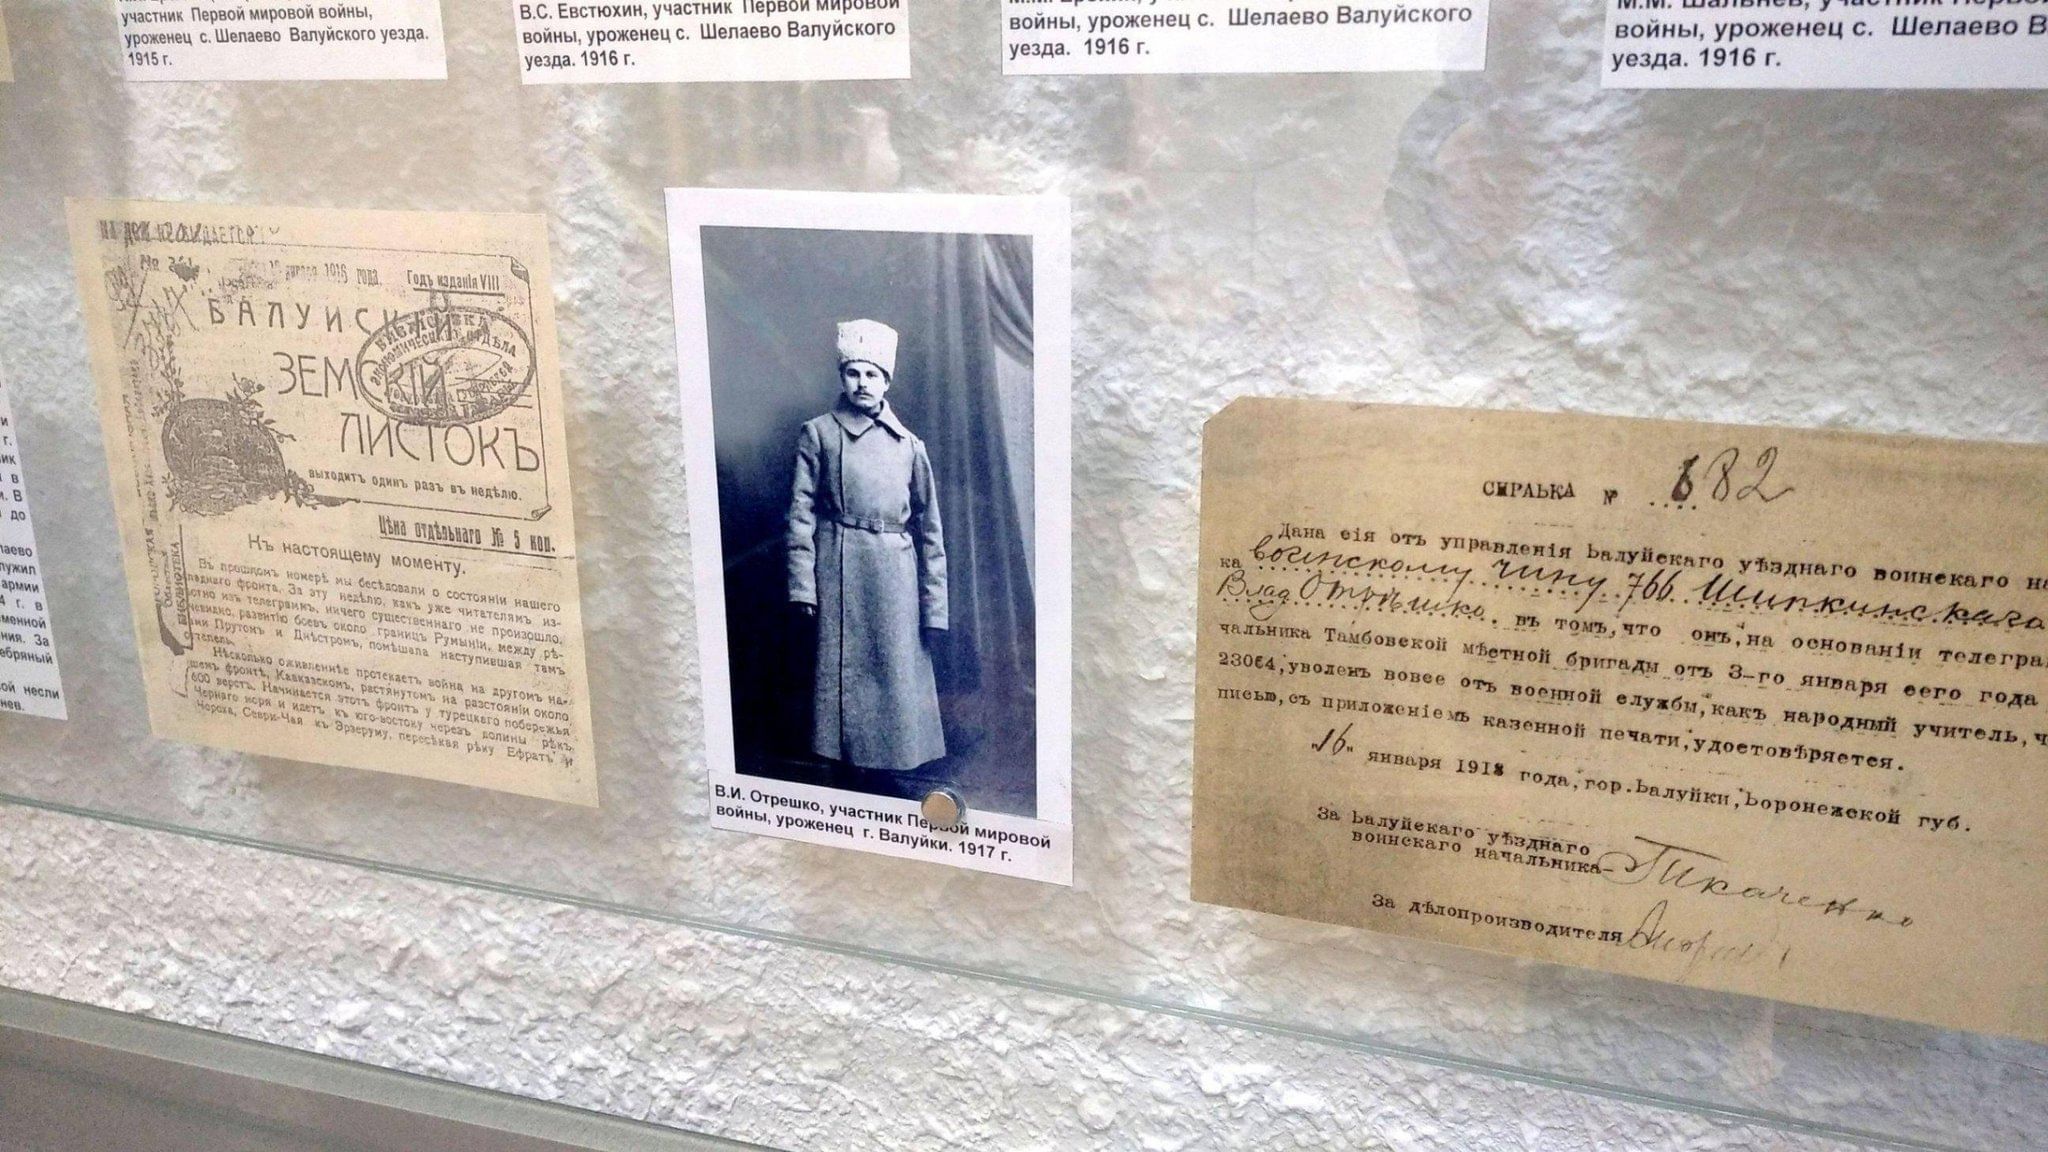 участник Первой мировой войны,
уроженец с. Шелаево Валуйского уезда.
1915 г.
В.С. Евстюхин, участник Первой мировой
войны, уроженец с. Шелаево Валуйского
уезда. 1916 г.
войны, уроженец с. Шелаево Валуйского
уезда. 1916 г.
М.М. Шальнев, участник
войны, уроженец с. Шелаево
уезда. 1916 г.
1916 года. Годъ изданія VIII
ВАЛУЙСКІЙ
ЗЕМСКІЙ
ЛИСТОКЪ
выходитъ одинъ разъ въ недѣлю.
Цѣна отдѣльнаго № 5 коп.
Къ настоящему моменту.
Въ прошломъ номерѣ мы бесѣдовали о состояніи нашего
западнаго фронта. За эту недѣлю, какъ уже читателямъ из-
вѣстно изъ телеграммъ, ничего существеннаго не произошло.
развитію боевъ около границъ Румыніи, между рѣ-
ками Прутомъ и Днѣстромъ, помѣшала наступившая тамъ
оттепель.
Нѣсколько оживленнѣе протекаетъ война на другомъ на-
шемъ фронтѣ, Кавказскомъ, растянутомъ на разстояніи около
600 верстъ. Начинается этотъ фронтъ у турецкаго побережья
Чернаго моря и идетъ къ юго-востоку черезъ долины рѣкъ
Чороха, Севри-Чая къ Эрзеруму, пересѣкая рѣку Ефратъ и
В.И. Отрешко, участник Первой мировой
войны, уроженец г. Валуйки. 1917 г.
СПРАВКА № 682
Дана сія отъ управленія Валуйскаго уѣзднаго воинскаго на
ка воинскому чину 766 Шипкинскаго
Влад Отрѣшко. въ томъ, что онъ, на основаніи телегра
чальника Тамбовской мѣстной бригады отъ 3-го января сего года
23064, уволенъ вовсе отъ военной службы, какъ народный учитель, ч
писью, съ приложеніемъ казенной печати, удостовѣряется.
"16" января 1918 года, гор. Валуйки, Воронежской губ.
За Валуйскаго уѣзднаго
воинскаго начальника- Ткаченко
За дѣлопроизводителя